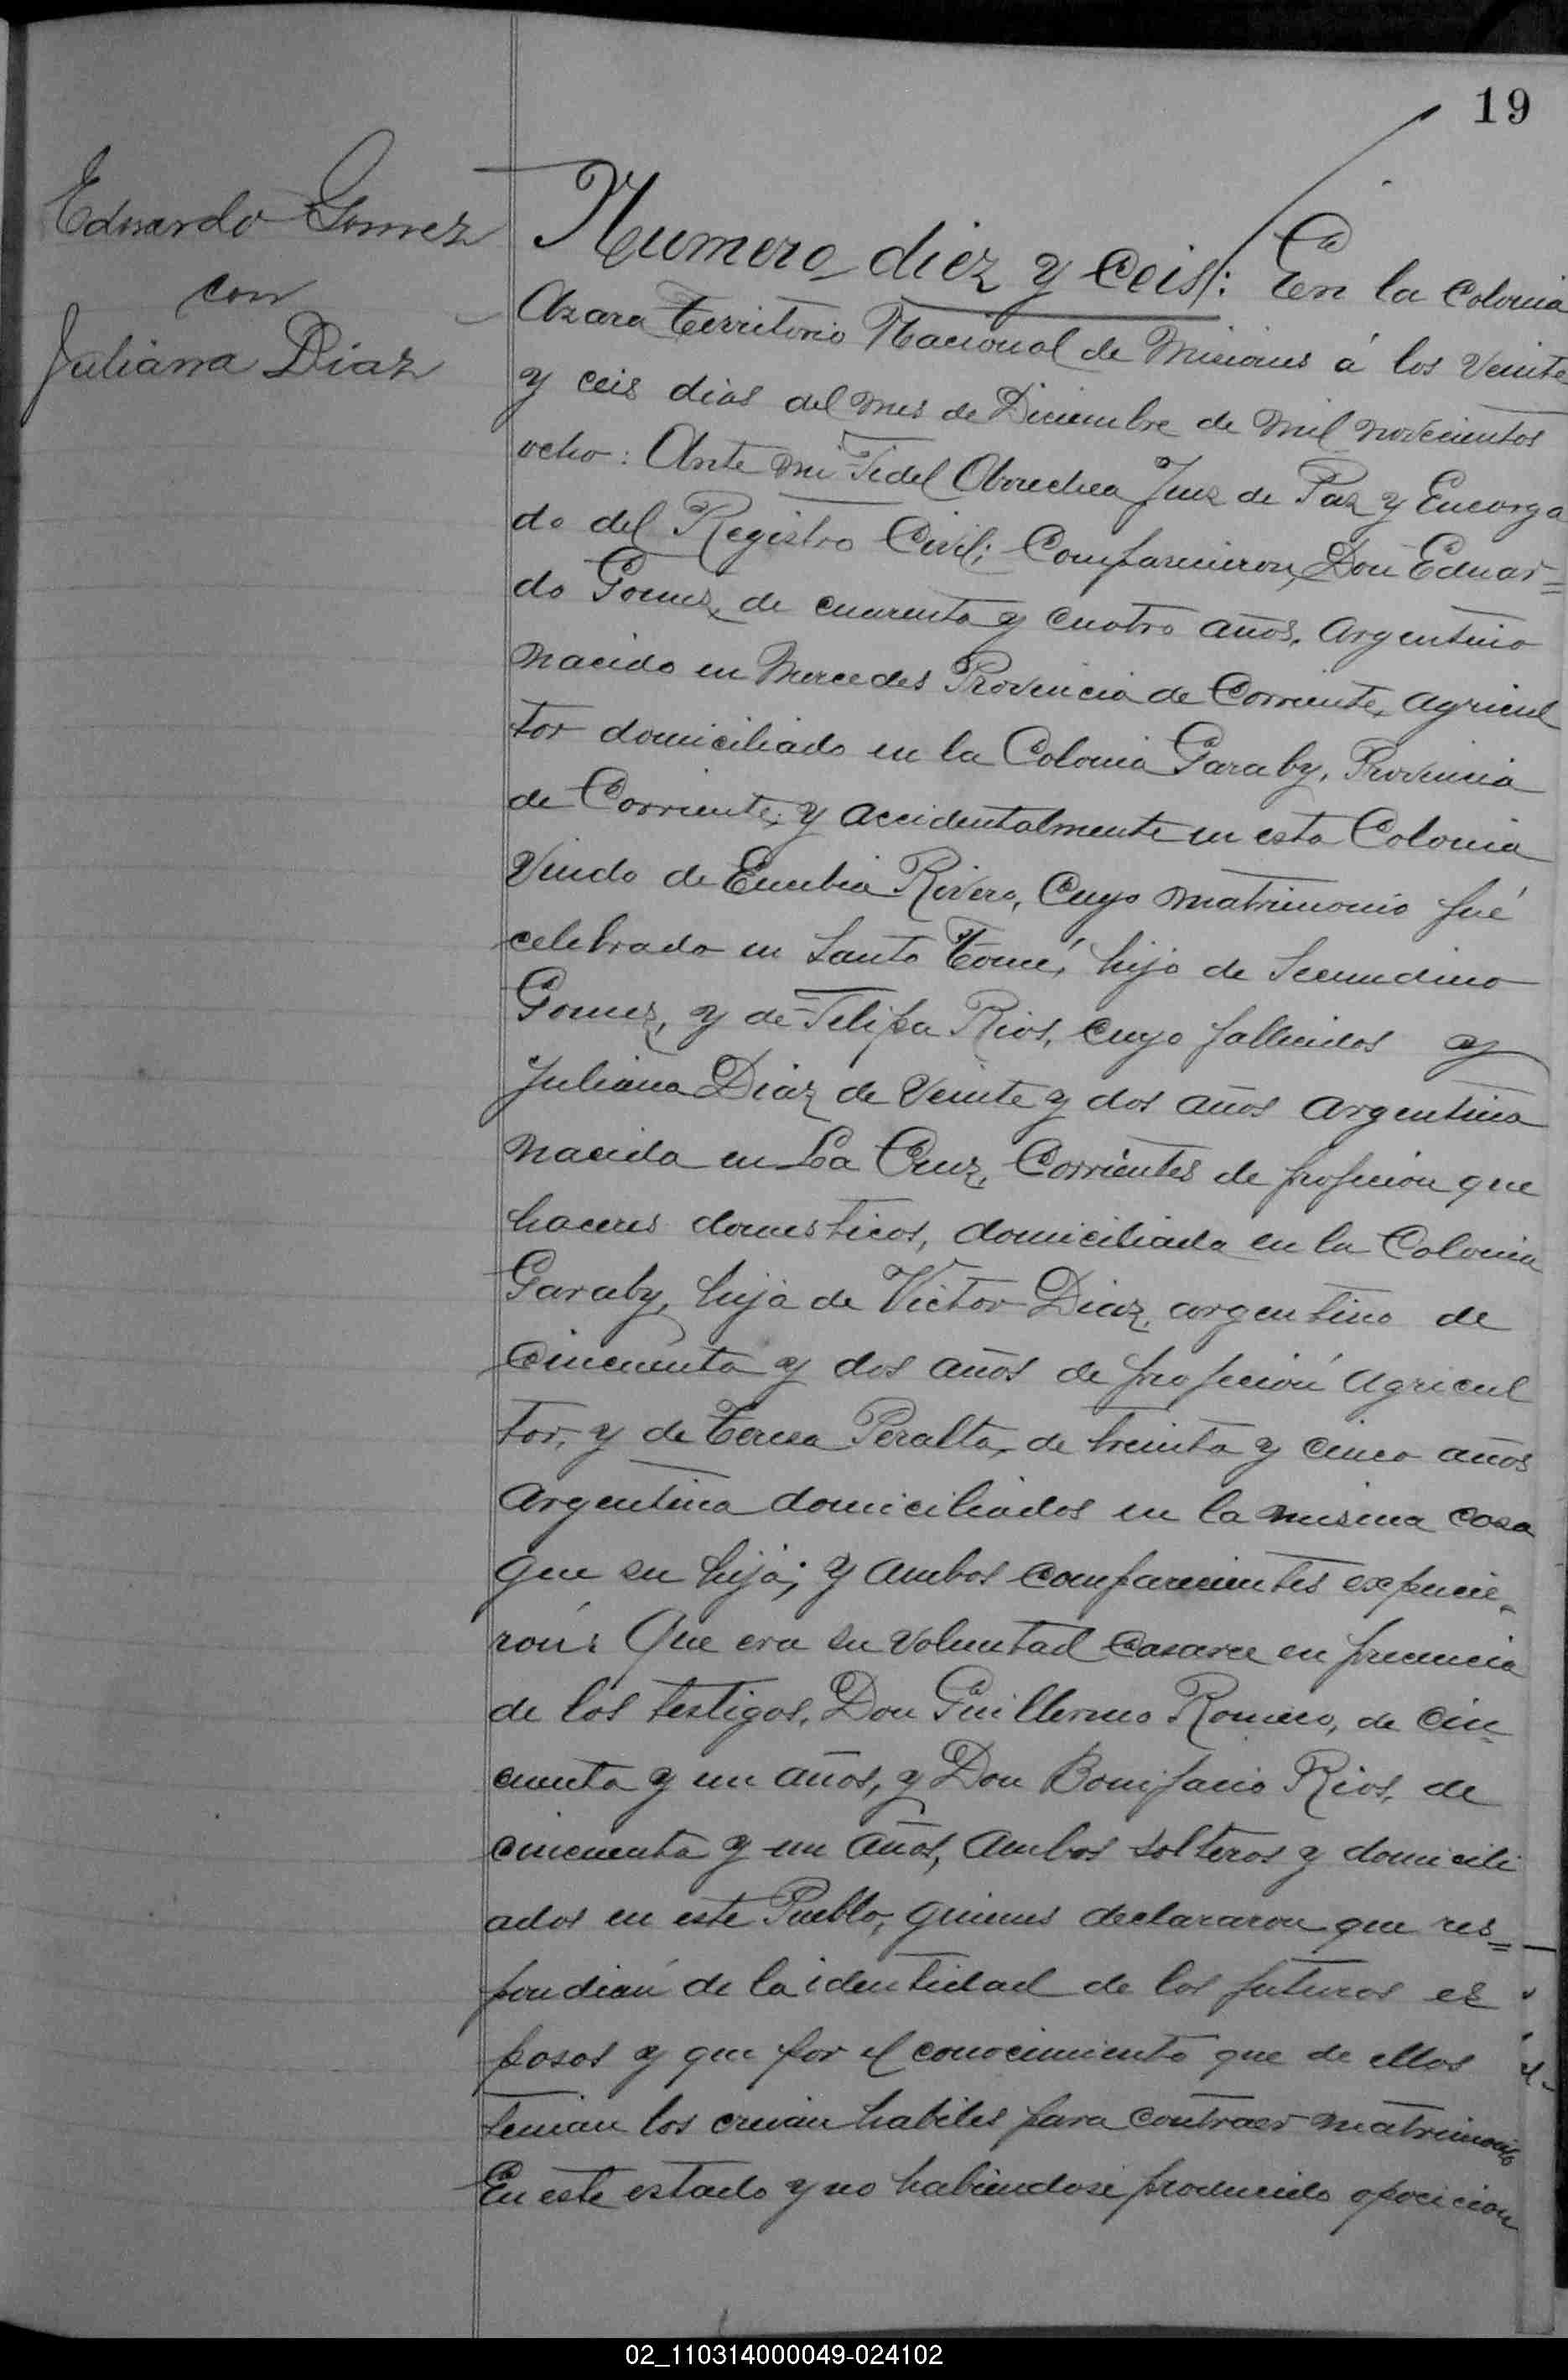 19
Eduardo Gomez
con
Juliana Diaz
Numero diez y ceis: En la Colonia
Azara Territorio Nacional de Misiones á los Veinte
y ceis dias del mes de Diciembre de mil novecientos
ocho: Ante mi Fidel Juez de Paz y Encarga
do del Registro Civil; Comparecieron Don Eduar=
do Gomez, de cuarenta y cuatro años, argentino
nacido en Mercedes Provincia de Corriente, agricul
tor domiciliado en la Colonia Garaby, Provincia
de Corriente, y accidentalmente en esta Colonia
Viudo de Rivero, Cuyo matrimonio fué
celebrado en Santo Tomé, hijo de Secundino
Gomez, y de Felipa Rios, cuyo fallecidos y
Juliana Diaz de Veinte y dos años argentina
nacida en La Cruz, Corrientes de profecion que
haceres domesticos, domiciliada en la Colonia
Garaby, hija de Victor Diaz, argentino de
Cincuenta y dos años de profeción agricul
tor, y de Teresa Peralta, de treinta y cinco años
argentina domiciliados en la misma casa
que su hija; y ambos comparecientes expucie-
ron: Que era su voluntad Casarce en precencia
de los testigos, Don Guillermo Romero, de cin-
cuenta y un años, y Don Bonifacio Rios, de
cincuenta y un años, ambos solteros y domicili
ados en este Pueblo, quienes declararon que res=
pondian de la identidad de los futuros es
posos y que por el conocimiento que de ellos
tenian los creian habiles para contraer matrimonio
En este estado y no habiendose producido opocicion
02_110314000049-024102